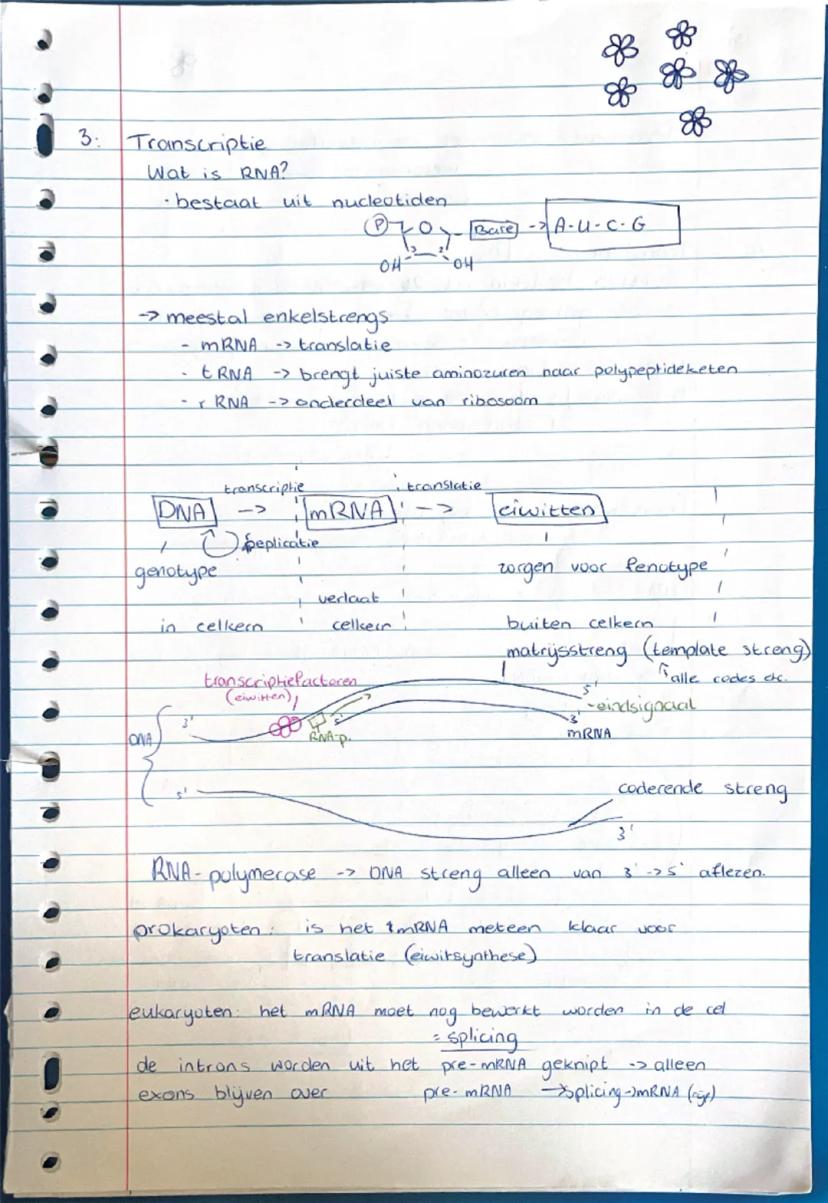 3: Transcriptie
Wat is RNA?
· bestaat uit nucleotiden
P O Base -> A-U-C-G
3' 2'
OH OH
-> meestal enkelstrengs
- mRNA -> translatie
- tRNA -> brengt juiste aminozuren naar polypeptideketen
- rRNA -> onderdeel van ribosoom
transcriptie translatie
DNA -> mRNA -> eiwitten
replicatie
genotype zorgen voor fenotype
verlaat
in celkern celkern buiten celkern
matrijsstreng (template streng)
alle codes etc.
transcriptiefactoren
(eiwitten)
5'
3' 5' eindsignaal
RNA-p. 3'
DNA mRNA
5' coderende streng
3'
RNA-polymerase -> DNA streng alleen van 3' -> 5' aflezen.
prokaryoten: is het mRNA meteen klaar voor
translatie (eiwitsynthese)
eukaryoten: het mRNA moet nog bewerkt worden in de cel
= splicing
de introns worden uit het pre-mRNA geknipt -> alleen
exons blijven over pre-mRNA -> splicing -> mRNA